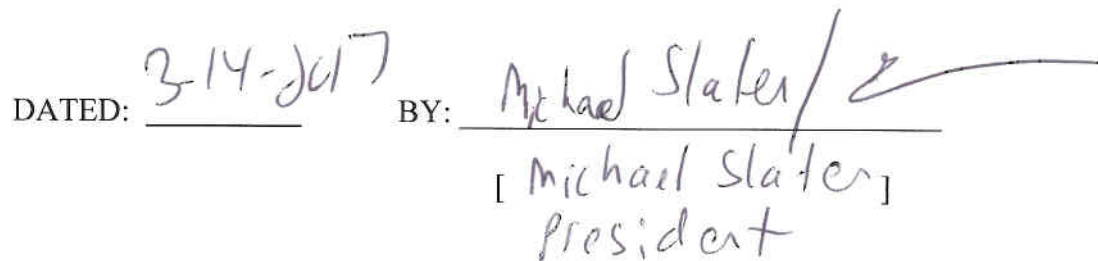 DATED: 3-14-2017 BY: Michael Slater/
[ Michael Slater ]
President